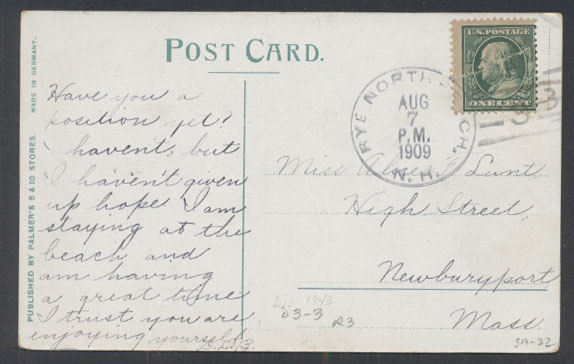 POST CARD.
MADE IN GERMANY.
PUBLISHED BY PALMER'S 5 & 10 STORES.
Have you a
position yet?
I haven't, but
I haven't given
up hope I am
staying at the
beach and
am having
a great time
I trust you are
enjoying yourself
U.S. POSTAGE
ONE CENT
RYE NORTH BEACH,
AUG
7
P.M.
1909
N.H.
Miss Lunt
High Street,
Newburyport
Mass.
1943
D3-3 R3
S19-22